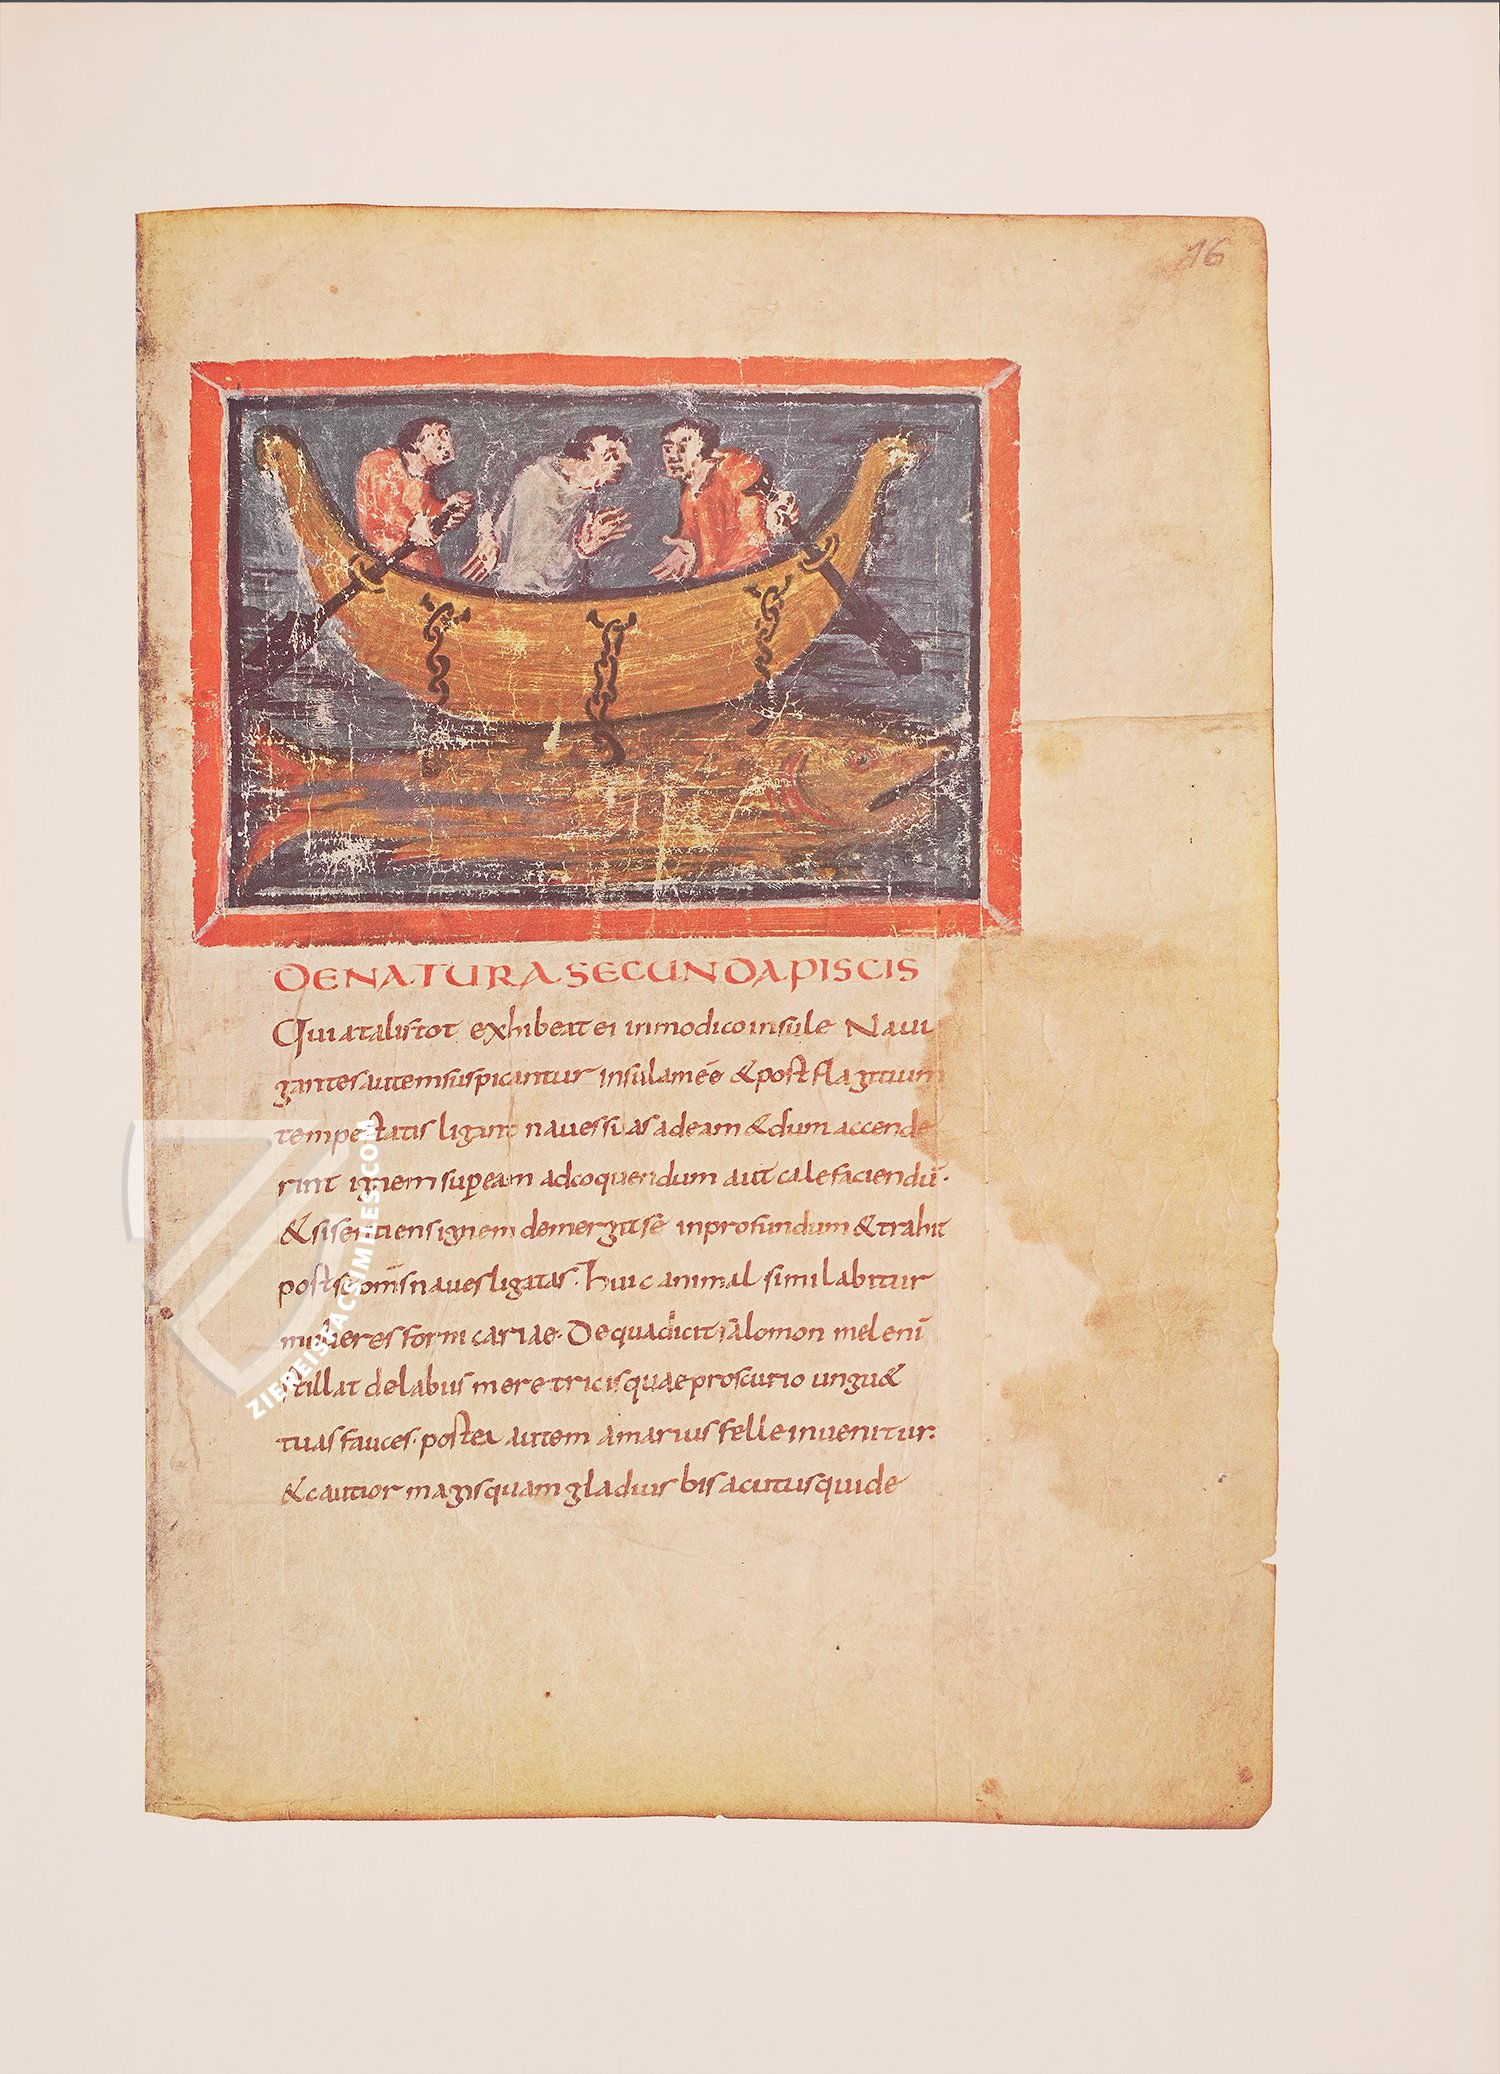 16
DENATURASECUNDAPISCIS
Quiatalistot exhibeatei inmodicoinsule Naui
gantesautemsuspicantur insulamēē &postflagitium
tempestatis ligant nauessuasadeam &dum accende
rint ignem supeam adcoquendum aut calefaciendū·
&sisentiensignem demergitsē inprofundum &trahit
postseomīsnauesligatas· huic animal similabitur
mulieres fornicariae· Dequadicit salomon mel enī
stillat delabiis meretricisquaeproscutio ungu&
tuasfauces· postea autem amarius felleinuenitur:
&cautior magisquam gladius bis acutusquide
ZIEREIS FACSIMILES.COM